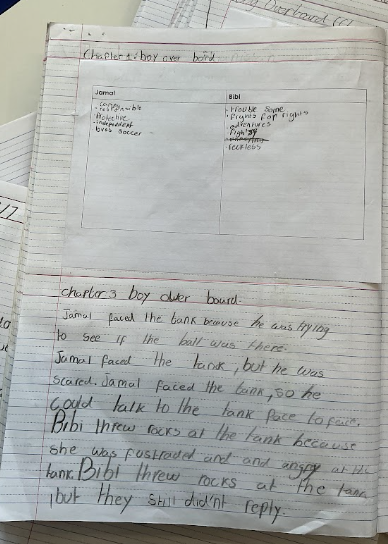 Overboard (
Chapter 1: boy over board.
Jamal
Bibi
- caring
- responsible
- Protective
- independent
loves soccer
- trouble some
- fights for rights
- adventures
- fight
- reckless
chapter 3 boy over board.
Jamal faced the tank because he was trying
to see if the ball was there.
Jamal faced the tank, but he was
scared. Jamal faced the tank, so he
could talk to the tank face to face.
Bibi threw rocks at the tank because
she was fustraded and and angry at the
tank. Bibi threw rocks at the tank
, but they still did'nt reply.